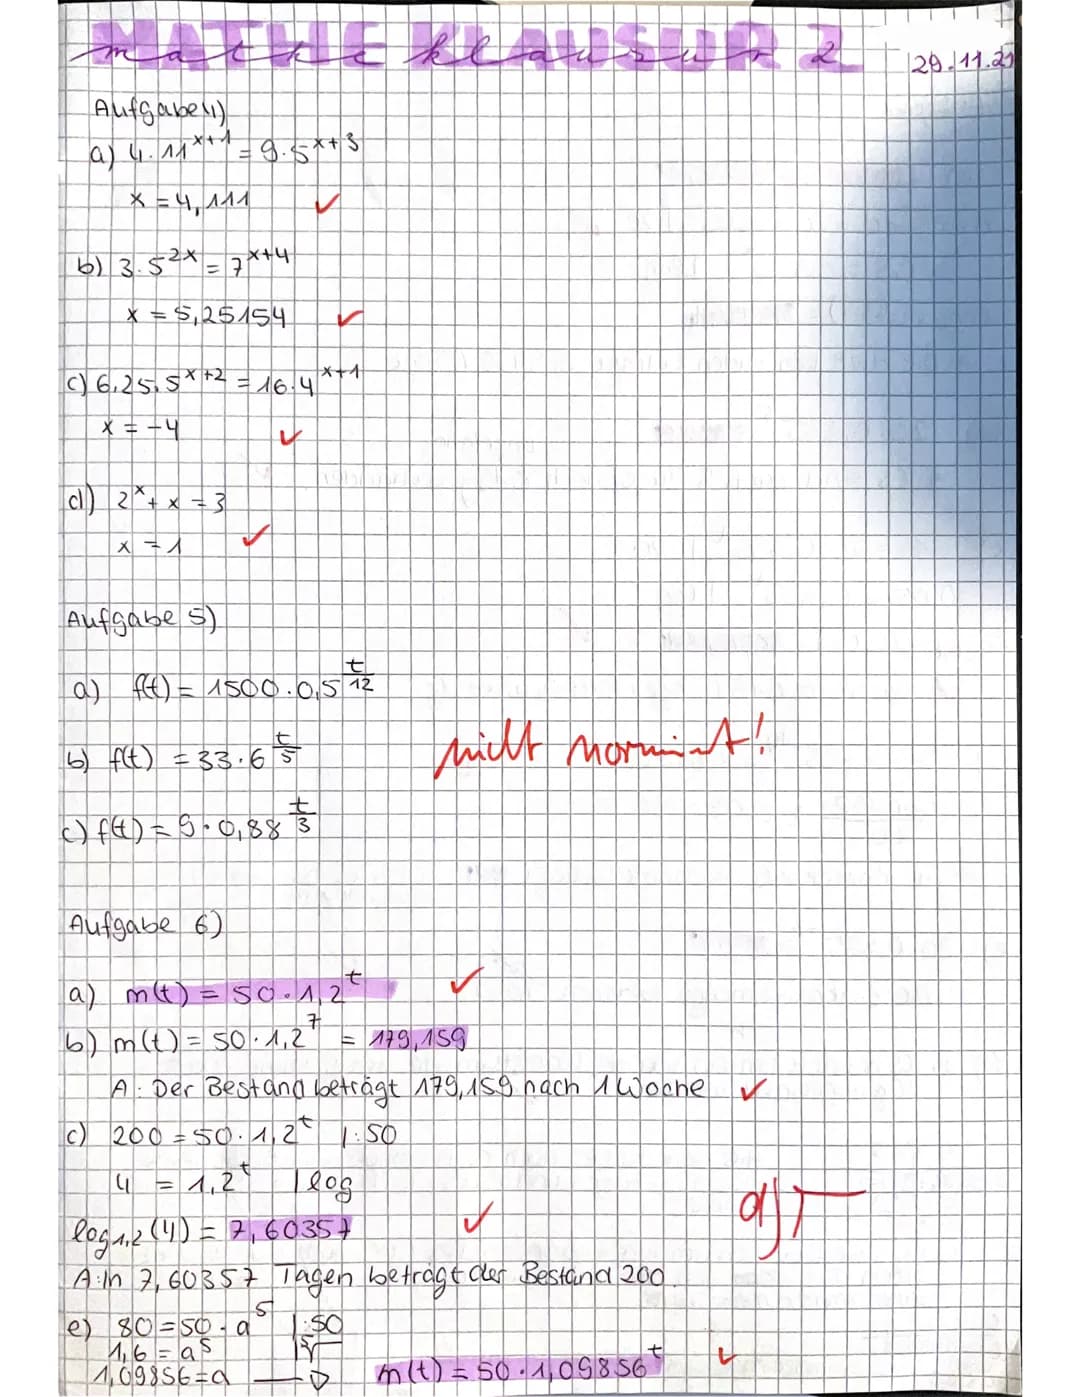 MATHE KLAUSUR 2
mathe klausur 2
29.11.21
Aufgabe 4)
a) 4·11^(x+1) = 9·5^(x+3)
x = 4,111 ✓
b) 3·5^(2x) = 7^(x+4)
x = 5,25154 ✓
c) 6,25·5^(x+2) = 16·4^(x+1)
x = -4 ✓
d) 2^x + x = 3
x = 1 ✓
Aufgabe 5)
a) f(t) = 1500·0,5^(t/12)
b) f(t) = 33·6^(t/5)
nicht normiert!
c) f(t) = 9·0,88^(t/3)
Aufgabe 6)
a) m(t) = 50·1,2^t ✓
b) m(t) = 50·1,2^7 = 179,159
A: Der Bestand beträgt 179,159 nach 1 Woche ✓
c) 200 = 50·1,2^t |:50
4 = 1,2^t |log
log1,2(4) = 7,60357 ✓
d)
A: In 7,60357 Tagen beträgt der Bestand 200.
e) 80 = 50·a^5 |:50
1,6 = a^5 |⁵√
1,09856 = a → m(t) = 50·1,09856^t ✓